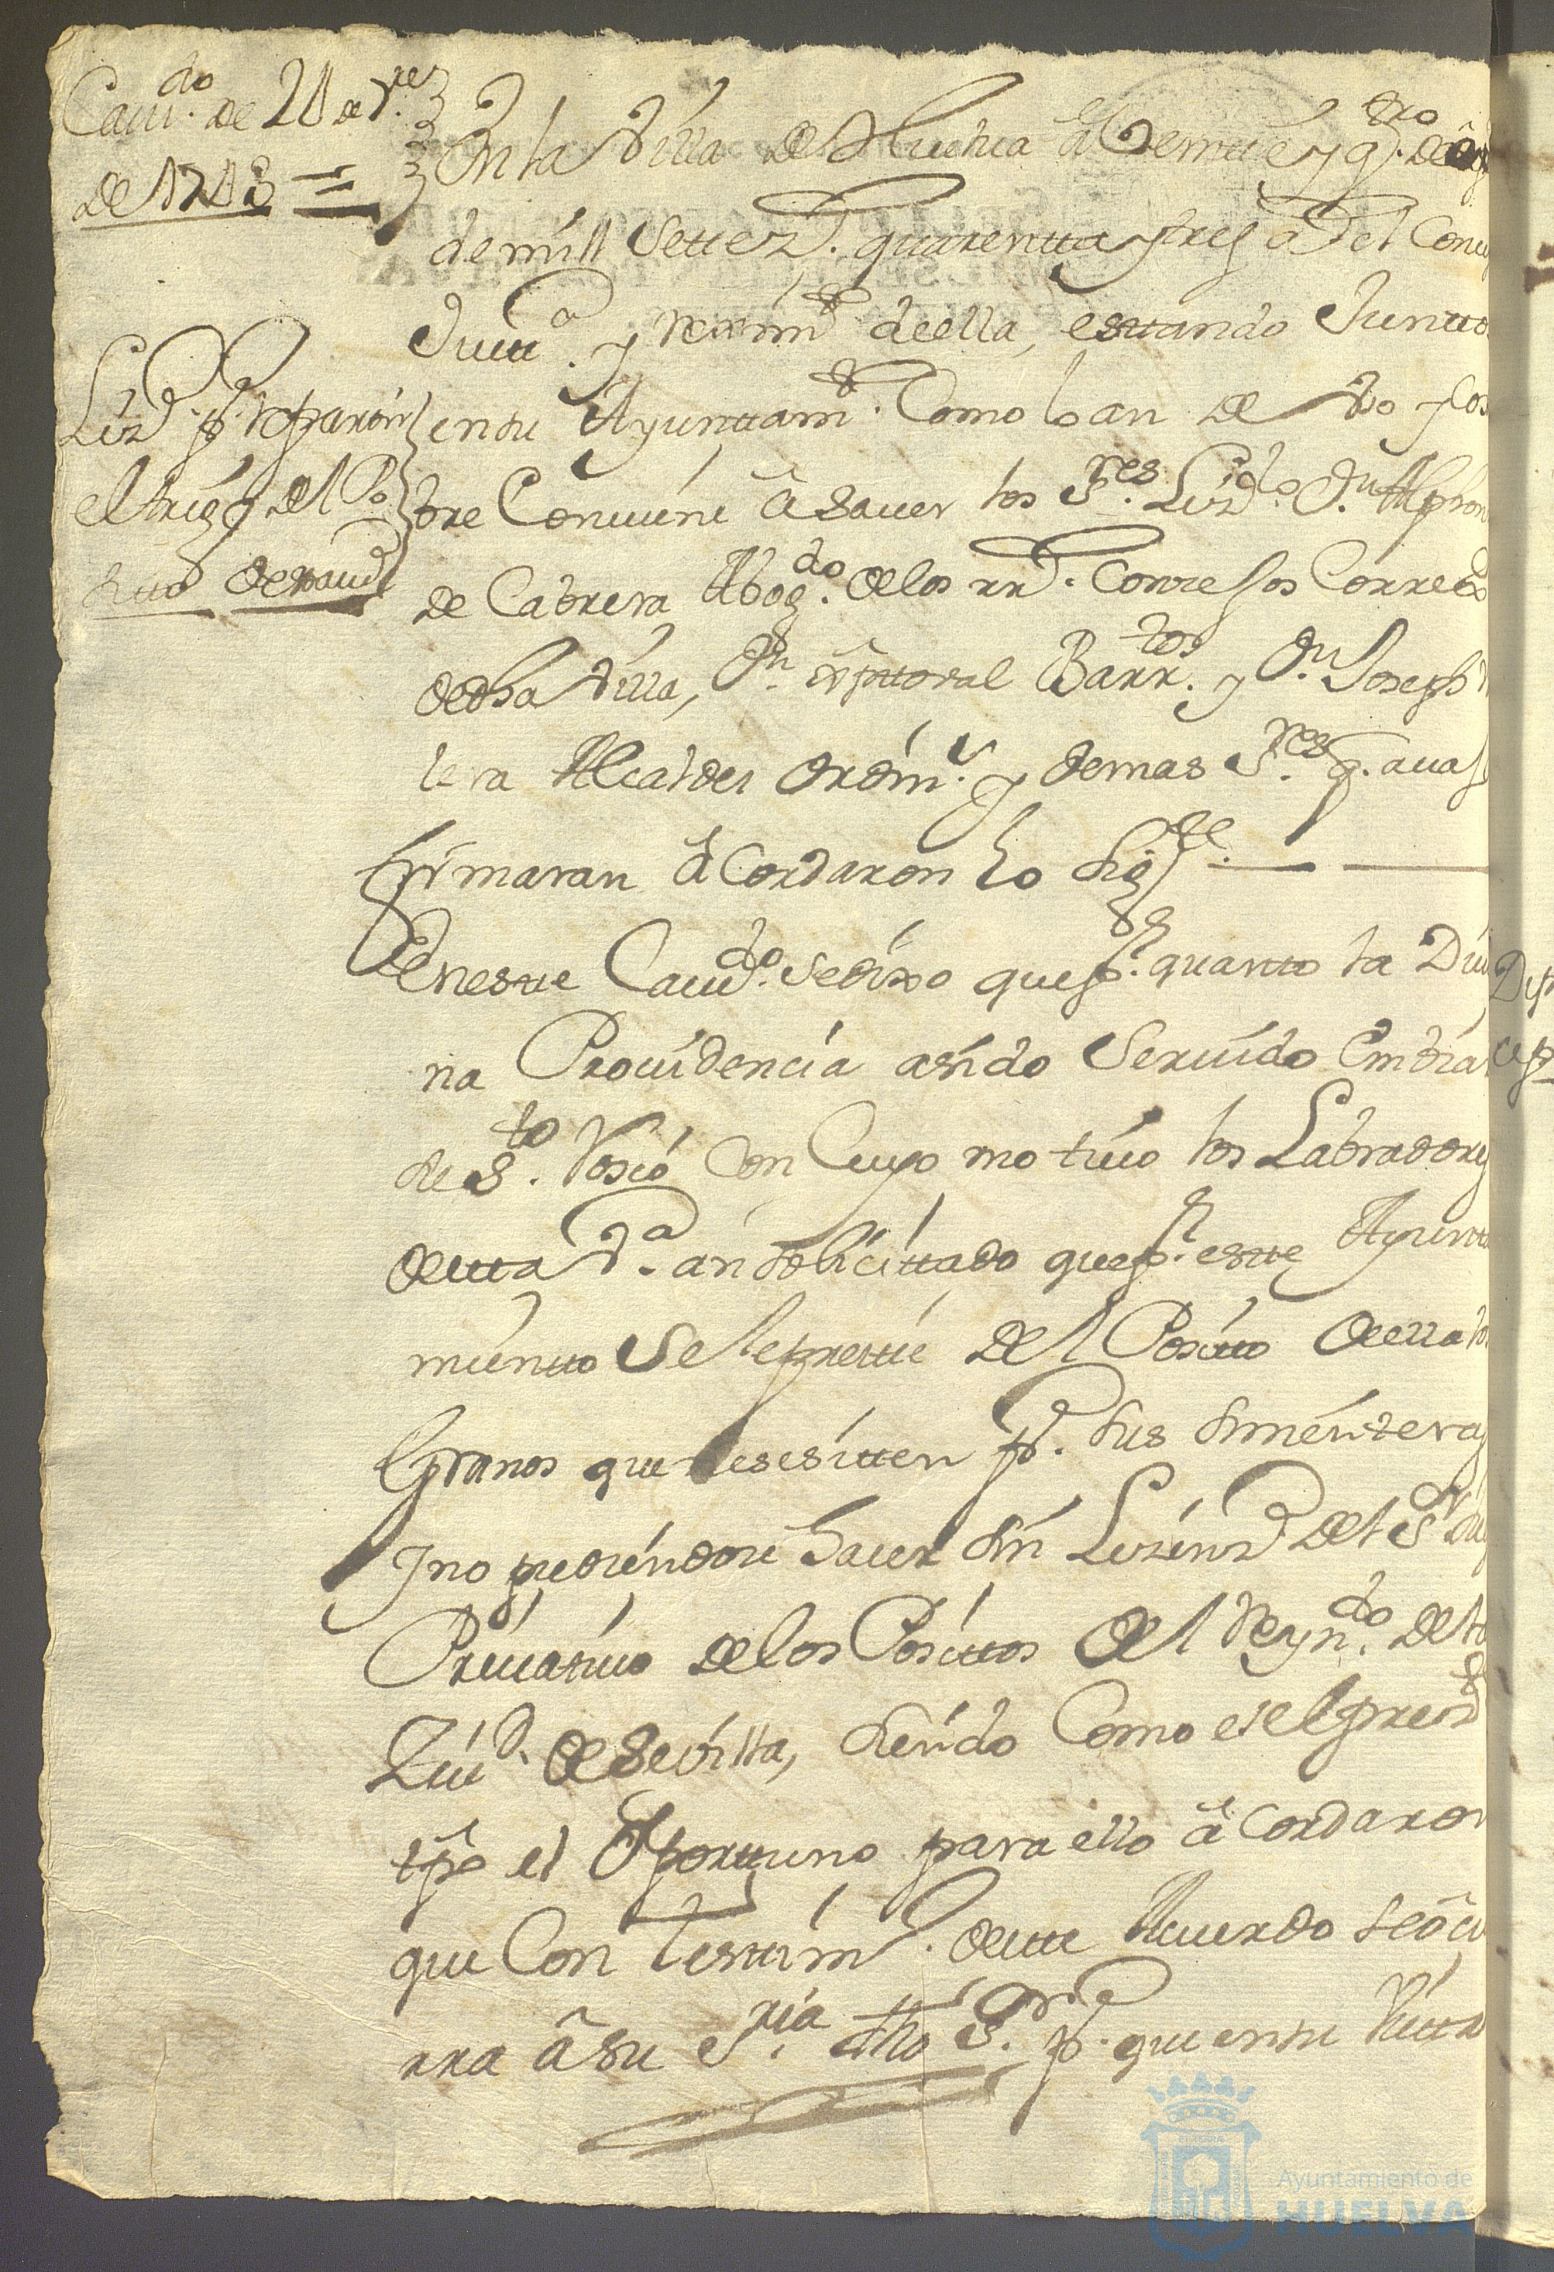 Cavi.do de 24 de 7.re
de 1743 =
Liz.a p.a reparar
el trigo del Po
sito de esta v.a
En la Villa de Huelva â Veinte y q.tro de
de mill Settez.s quarentta y tres a.s el Concejo
Justt.a y rexim.to de ella, estando Junttos
en su Ayunttam.to Como lo an de Vso y cos
tre Conviene â saver los S.res Liz.do D.n Alphonso
de Cabrera Abog.do de los rr.s Consejos Correx.or
de dha Villa, D.n Xptoval Barr.tos y D.n Joseph
lera Alcaldes Ordin.s y demas S.res q. avajo
firmaran âcordaron lo sig.te
En este Cavi.do se dixo que p.r quanto la Divi
na Providencia a sido Servido Embiar
de S.to Rosio Con Cuyo motivo los Labradores
de esta V.a an solicittado que p.r este Ayuntta
mientto Se le prestte del Positto de ella los
Granos que nesesitten p.a sus simenteras
Y no pudiendose hacer sin Lizenz.a del S.r Juez
Privativo de los Posittos del Reyn.do de la
Ziu.d de Sevilla, siendo Como es el presen.te
tpo el Oporttuno para ello âcordaron
que Con testtim.o de este Acuerdo se ôcu
rra â su S.ria dho S.r p.a que en su Vista
Ayuntamiento de
HUELVA